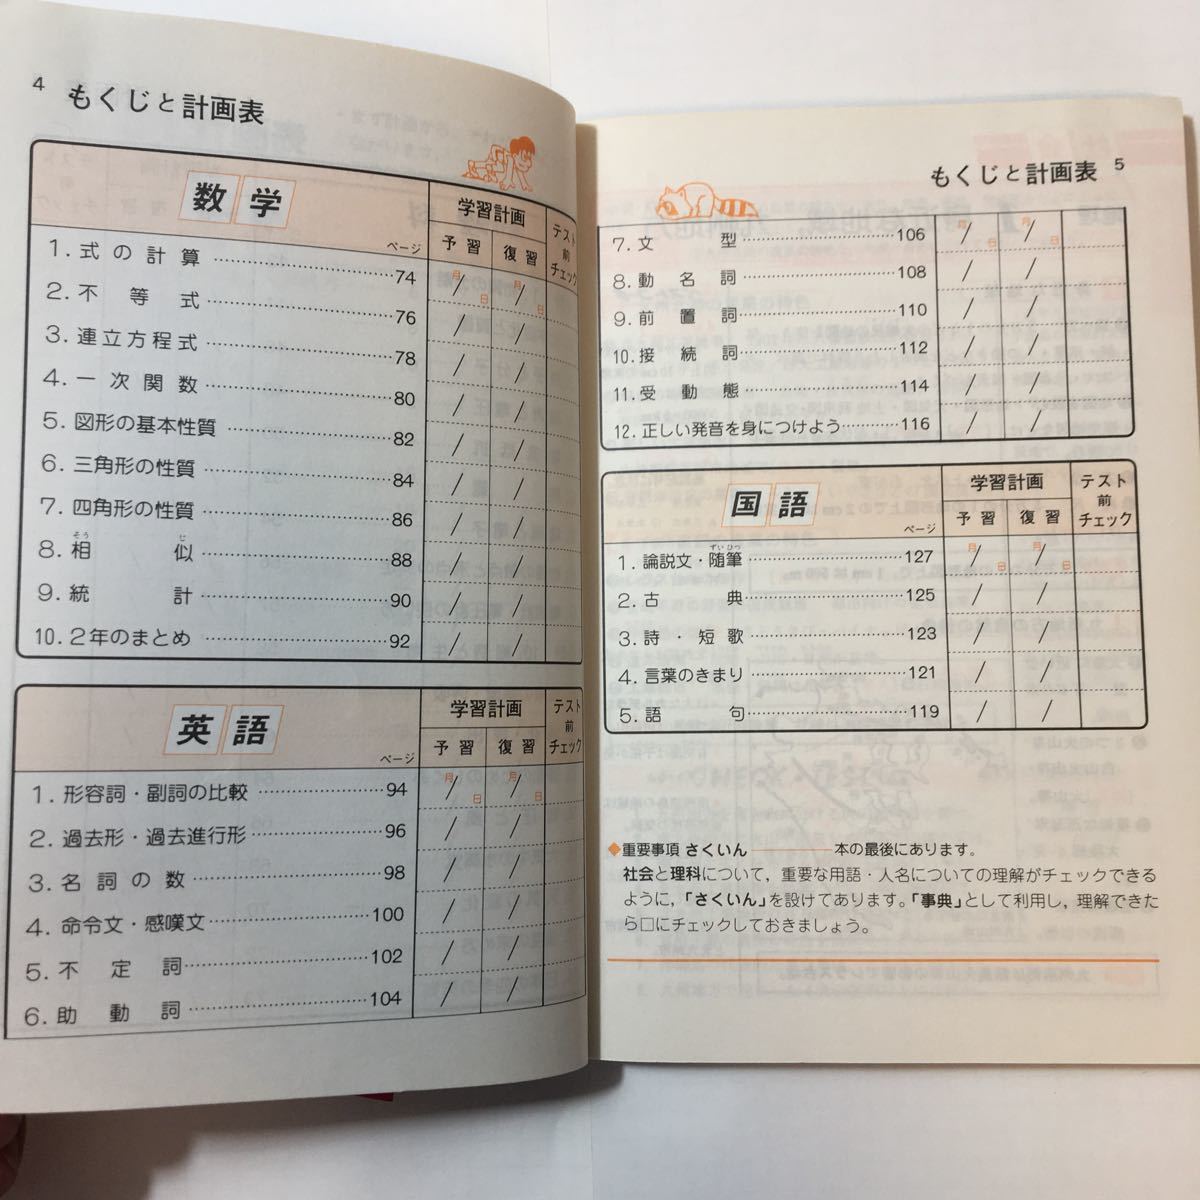 4 もくじと計画表
数学
学習計画
テスト前チェック
ページ
予習 復習
1. 式の計算 74 月/日 月/日
2. 不等式 76 / /
3. 連立方程式 78 / /
4. 一次関数 80 / /
5. 図形の基本性質 82 / /
6. 三角形の性質 84 / /
7. 四角形の性質 86 / /
そう じ
8. 相似 88 / /
9. 統計 90 / /
10. 2年のまとめ 92 / /
英語
学習計画
テスト前チェック
ページ
予習 復習
1. 形容詞・副詞の比較 94 月/日 月/日
2. 過去形・過去進行形 96 / /
3. 名詞の数 98 / /
4. 命令文・感嘆文 100 / /
5. 不定詞 102 / /
6. 助動詞 104 / /
もくじと計画表 5
7. 文型 106 月/日 月/日
8. 動名詞 108 / /
9. 前置詞 110 / /
10. 接続詞 112 / /
11. 受動態 114 / /
12. 正しい発音を身につけよう 116 / /
国語
学習計画
テスト前チェック
ページ
予習 復習
ずいひつ
1. 論説文・随筆 127 月/日 月/日
2. 古典 125 / /
3. 詩・短歌 123 / /
4. 言葉のきまり 121 / /
5. 語句 119 / /
◆重要事項 さくいん 本の最後にあります。
社会と理科について，重要な用語・人名についての理解がチェックできる
ように，「さくいん」を設けてあります。「事典」として利用し，理解できた
ら□にチェックしておきましょう。